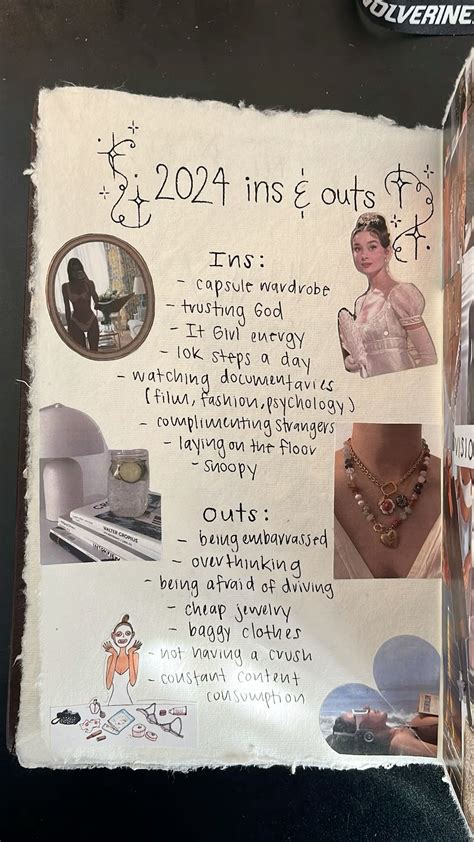 WOLVERINE
2024 ins & outs
Ins:
- capsule wardrobe
- trusting God
- It Girl energy
- 10k steps a day
- watching documentaries
(film, fashion, psychology)
- complimenting strangers
- laying on the floor
- snoopy
WALTER GROPIUS
outs:
- being embarrassed
- overthinking
- being afraid of driving
- cheap jewelry
- baggy clothes
- not having a crush
- constant content
consumption